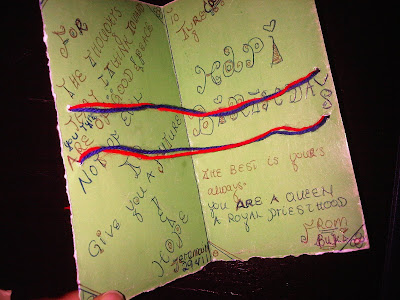 FOR
THE THOUGHTS
THAT I THINK TOWARD
YOU THIS
ARE OF GOOD & PEACE
NOT OF EVIL
TO
Give you A FUTURE
&
HOPE
Jeremiah
29 v 11
TO
HAPI
BIRTHDAY
THE BEST is yours
always.
you ARE A QUEEN
A ROYAL PRIESTHOOD
FROM